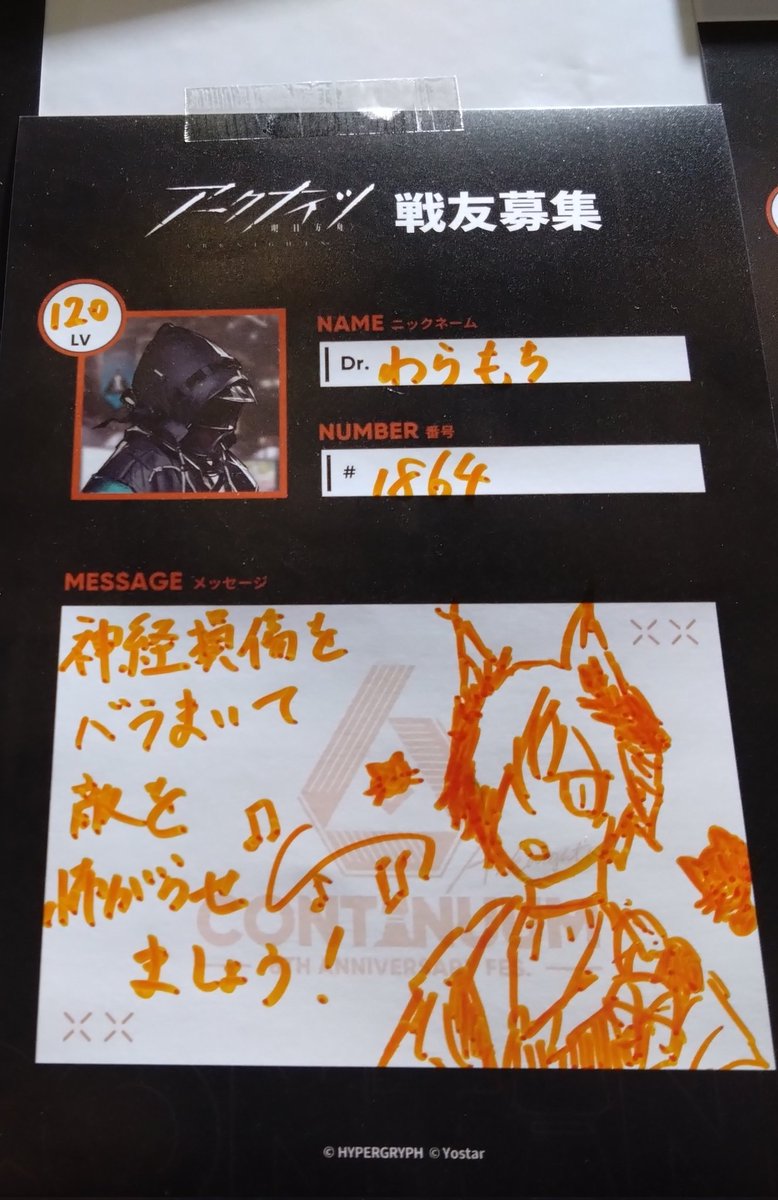 アークナイツ 戦友募集
明日方舟
ARKNIGHTS
120
LV
NAME ニックネーム
Dr. わらもち
NUMBER 番号
# 1864
MESSAGE メッセージ
神経損傷を
バラまいて
敵を
怖がらせ
ましょう!
CONTINUUM
ANNIVERSARY FES.
© HYPERGRYPH © Yostar